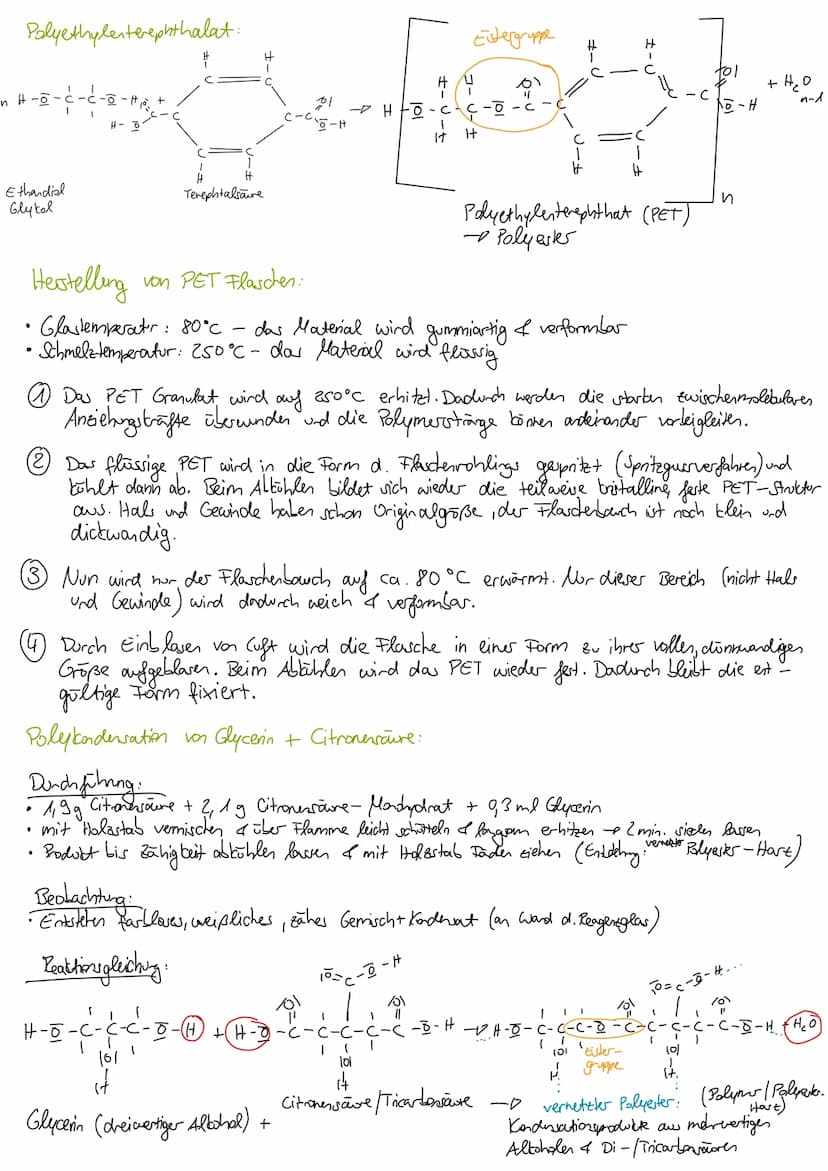 Polyethylenterephthalat:
Estergruppe
n H-O-C-C-O-H +
+ H2O
n-1
n
Ethandiol
Glykol
Terephtalsäure
Polyethylenterephthat (PET)
→ Polyester
Herstellung von PET Flaschen:
• Glastemperatur: 80°C – das Material wird gummiartig & verformbar
• Schmelztemperatur: 250°C – das Material wird flüssig
① Das PET Granulat wird auf 250°C erhitzt. Dadurch werden die starken zwischenmolekularen
Anziehungskräfte überwunden und die Polymerstränge können aneinander vorbeigleiten.
② Das flüssige PET wird in die Form d. Flaschenrohlings gespritzt (Spritzgussverfahren) und
kühlt dann ab. Beim Abkühlen bildet sich wieder die teilweise kristalline, feste PET-Struktur
aus. Hals und Gewinde haben schon Originalgröße, der Flaschenbauch ist noch klein und
dickwandig.
③ Nun wird nur der Flaschenbauch auf ca. 80°C erwärmt. Nur dieser Bereich (nicht Hals
und Gewinde) wird dadurch weich & verformbar.
④ Durch Einblasen von Luft wird die Flasche in einer Form zu ihrer vollen, dünnwandigen
Größe aufgeblasen. Beim Abkühlen wird das PET wieder fest. Dadurch bleibt die ent-
gültige Form fixiert.
Polykondensation von Glycerin + Citronensäure:
Durchführung:
• 1,9g Citronensäure + 2,1g Citronensäure-Monhydrat + 0,3ml Glycerin
• mit Holzstab vermischen & über Flamme leicht schütteln & langsam erhitzen → 2 min. sieden lassen
• Produkt bis Zähigkeit abkühlen lassen & mit Holzstab Fäden ziehen (Entstehung: vernetztes Polyester-Harz)
Beobachtung:
• Entstehen farbloses, weißliches, zähes Gemisch + Kondensat (an Wand d. Reagenzglas)
Reaktionsgleichung:
H-O-C-C-C-O-H + H-O-C-C-C-C-C-O-H → H-O-C-C-C-O-C-C-C-C-C-O-H + H2O
Ester-
gruppe
Glycerin (dreiwertiger Alkohol) +
Citronensäure/Tricarbonsäure
→ vernetzter Polyester: (Polymer/Polyester-
Harz)
Kondensationsprodukte aus mehrwertigen
Alkoholen & Di-/Tricarbonsäuren